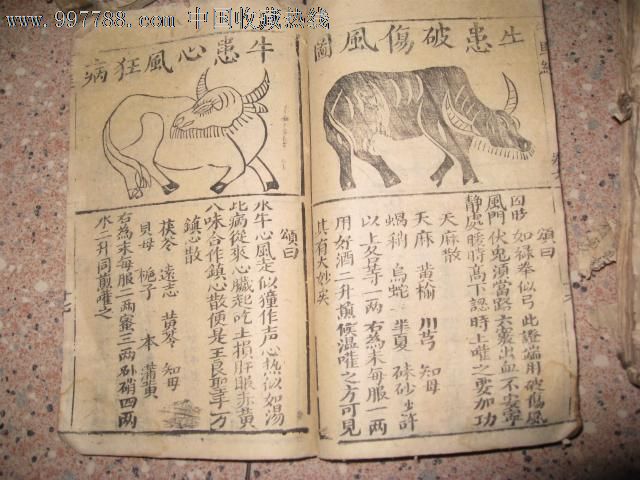 www.997788.com 中国收藏热线
牛患破傷風圖
頌曰
四肢如緑拳似弓此證端用破傷風
風門伏兎須當路大衆出血不安寧
静處暖時高下認時上嚾之要加功
天麻散
天麻 黄榆 川芎 知母
烏蛇 半夏 硃砂少許
以上各等一兩右為末每服一兩
用好酒二升煎候温嚾之方可見
其有大妙矣
牛患心風狂病
頌曰
水牛心風走似獐作声心热似如湯
此病從來心臟起吃上損肝眼赤黄
八味合作鎮心散便是王良聖手方
鎮心散
茯苓 遠志 黄芩 知母
貝母 梔子 本 蒲黄
右為末每服一兩蜜三兩朴硝四兩
水二升同煎嚾之